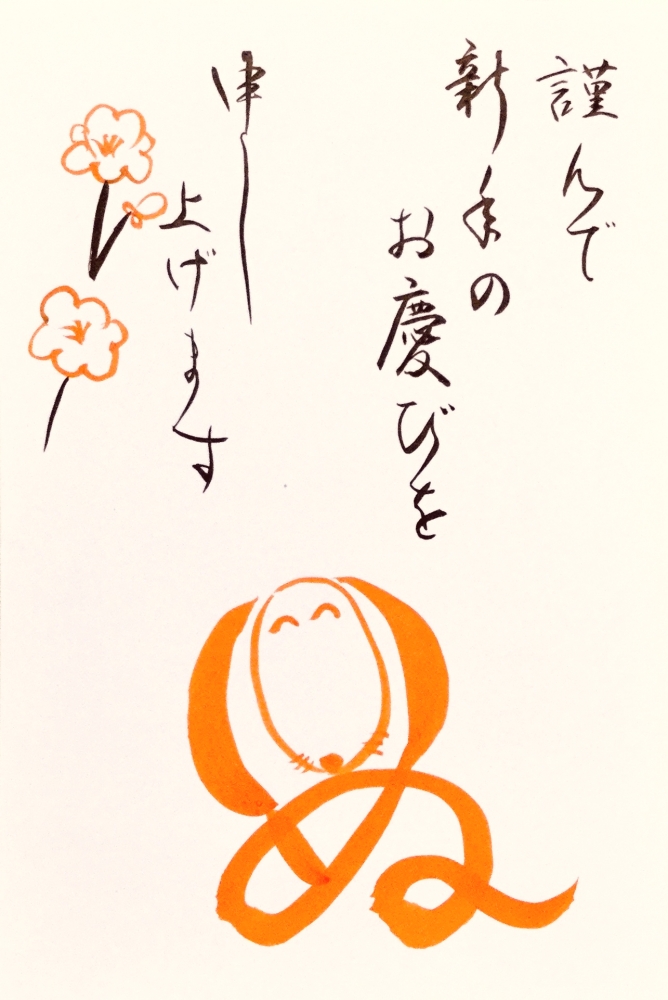 謹んで
新年の
お慶びを
申し
上げます
いぬ